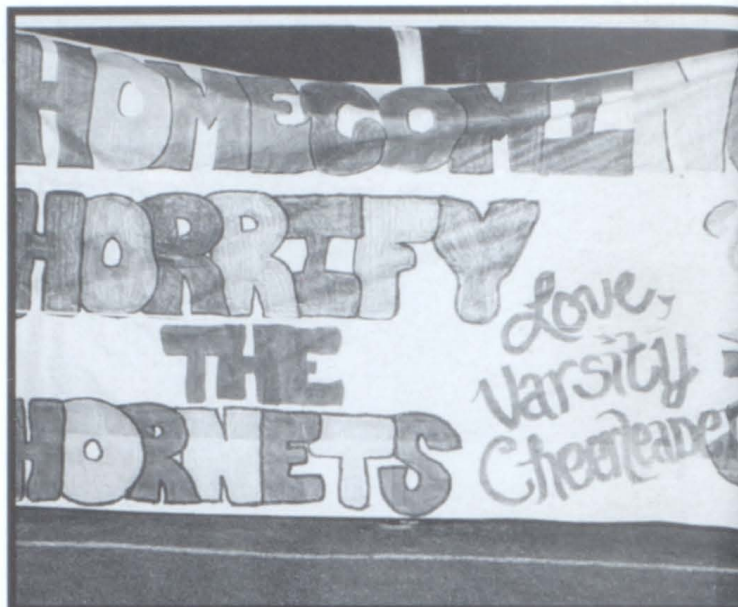 HOMECOMIN
HORRIFY
THE
HORNETS
Love,
Varsity
Cheerleader